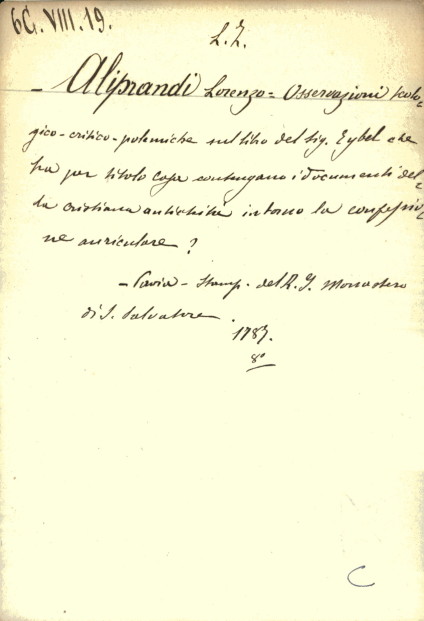 6G. VIII. 19.
L. Z.
- Aliprandi Lorenzo = Osservazioni teolo-
gico-critico-polemiche sul libro del Sig. Eybel che
ha per titolo cosa contengano i documenti del-
la cristiana antichità intorno la confessio-
ne auriculare?
- Pavia - Stamp. del R. I. Monastero
di S. Salvatore.
1787.
8°
C